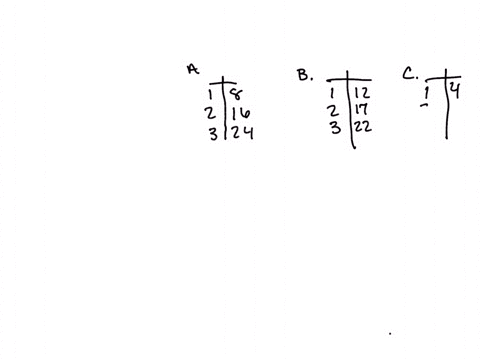 A B. C.
1 8 1 12 1 4
2 16 2 17
3 24 3 22